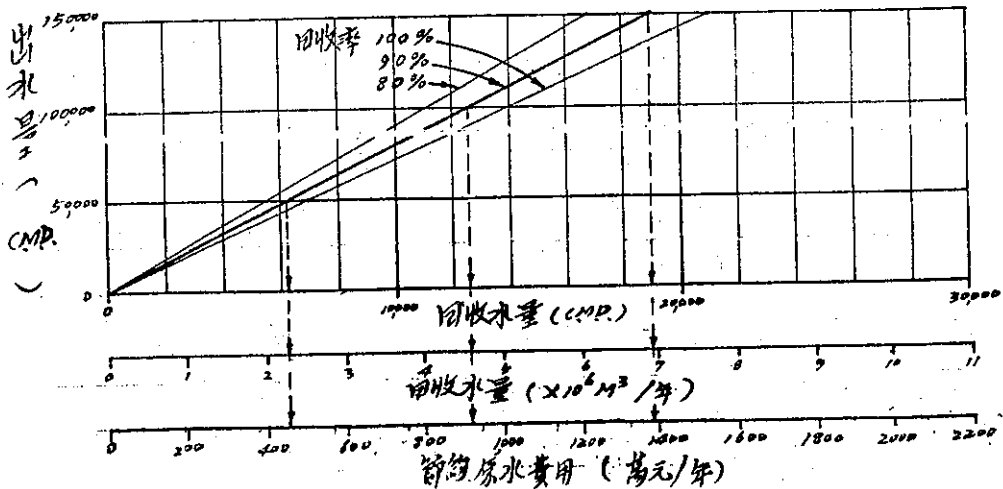 出水量(CMD.)
150,000
100,000
50,000
0
回收率 100%
90%
80%
10,000 20,000 30,000
回收水量(CMD.)
0 1 2 3 4 5 6 7 8 9 10 11
回收水量(×10⁶M³/年)
0 200 400 600 800 1000 1200 1400 1600 1800 2000 2200
節約原水費用(萬元/年)